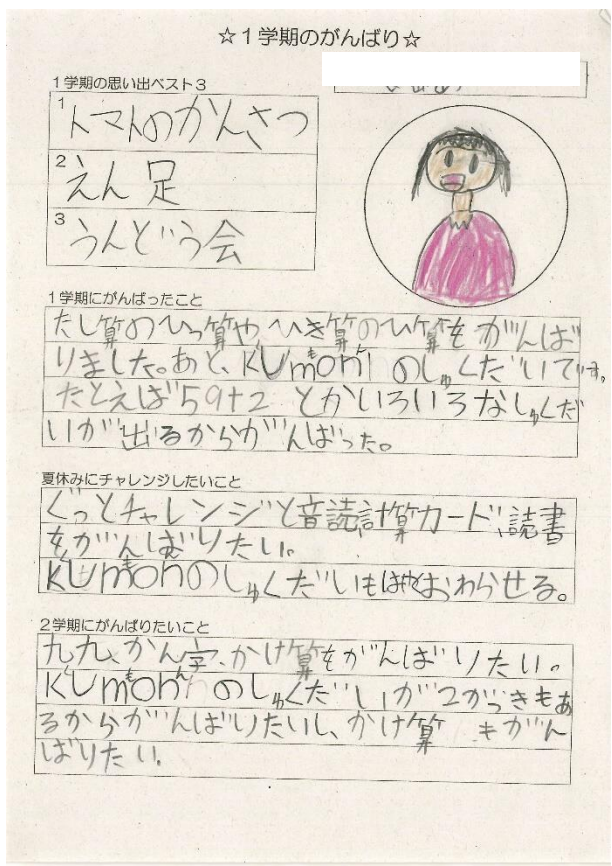 ☆１学期のがんばり☆
１学期の思い出ベスト３
1 トマトのかんさつ
2 えん足
3 うんどう会
１学期にがんばったこと
たし算のひっ算や、ひき算のひ算をがんば
りました。あと、KUmonのしゅくだいです。
たとえば59+2とかいろいろなしゅくだ
いが出るからがんばった。
夏休みにチャレンジしたいこと
ぐっとチャレンジと音読、計算カード、読書
をがんばりたい。
KUmonのしゅくだいもはやくおわらせる。
２学期にがんばりたいこと
九九、かん字、かけ算をがんばりたい。
KUmonのしゅくだいが2がっきもあ
るからがんばりたいし、かけ算もがん
ばりたい。